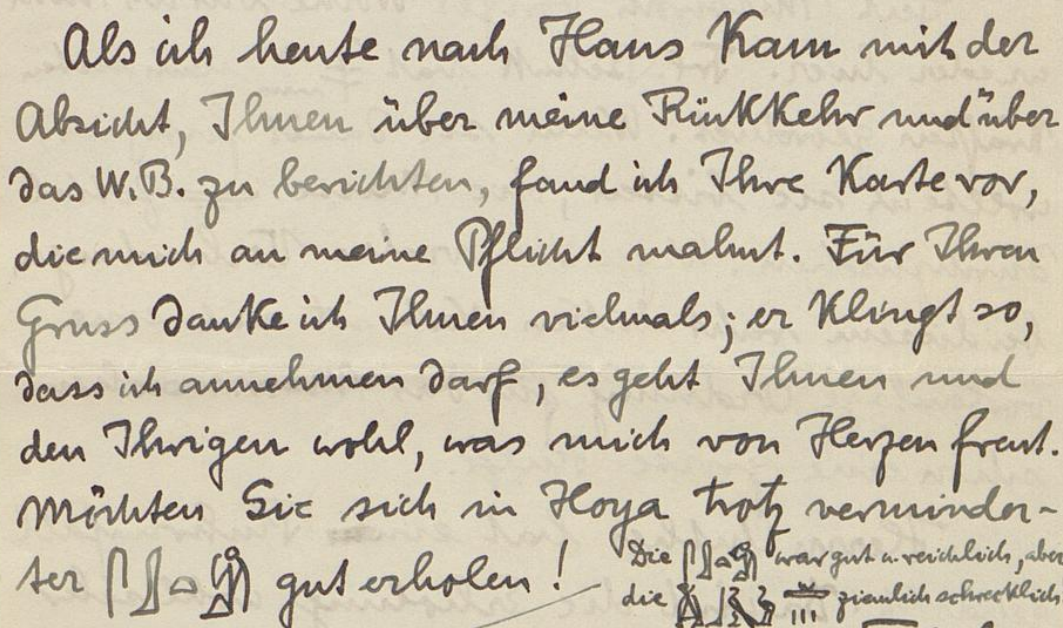 Als ich heute nach Haus kam mit der
Absicht, Ihnen über meine Rückkehr und über
das W.B. zu berichten, fand ich Ihre Karte vor,
die mich an meine Pflicht mahnt. Für Ihren
Gruss danke ich Ihnen vielmals; er klingt so,
dass ich annehmen darf, es geht Ihnen und
den Ihrigen wohl, was mich von Herzen freut.
Möchten Sie sich in Hoya trotz verminder-
ter gut erholen!
Die war gut u. reichlich, aber
die ziemlich schrecklich